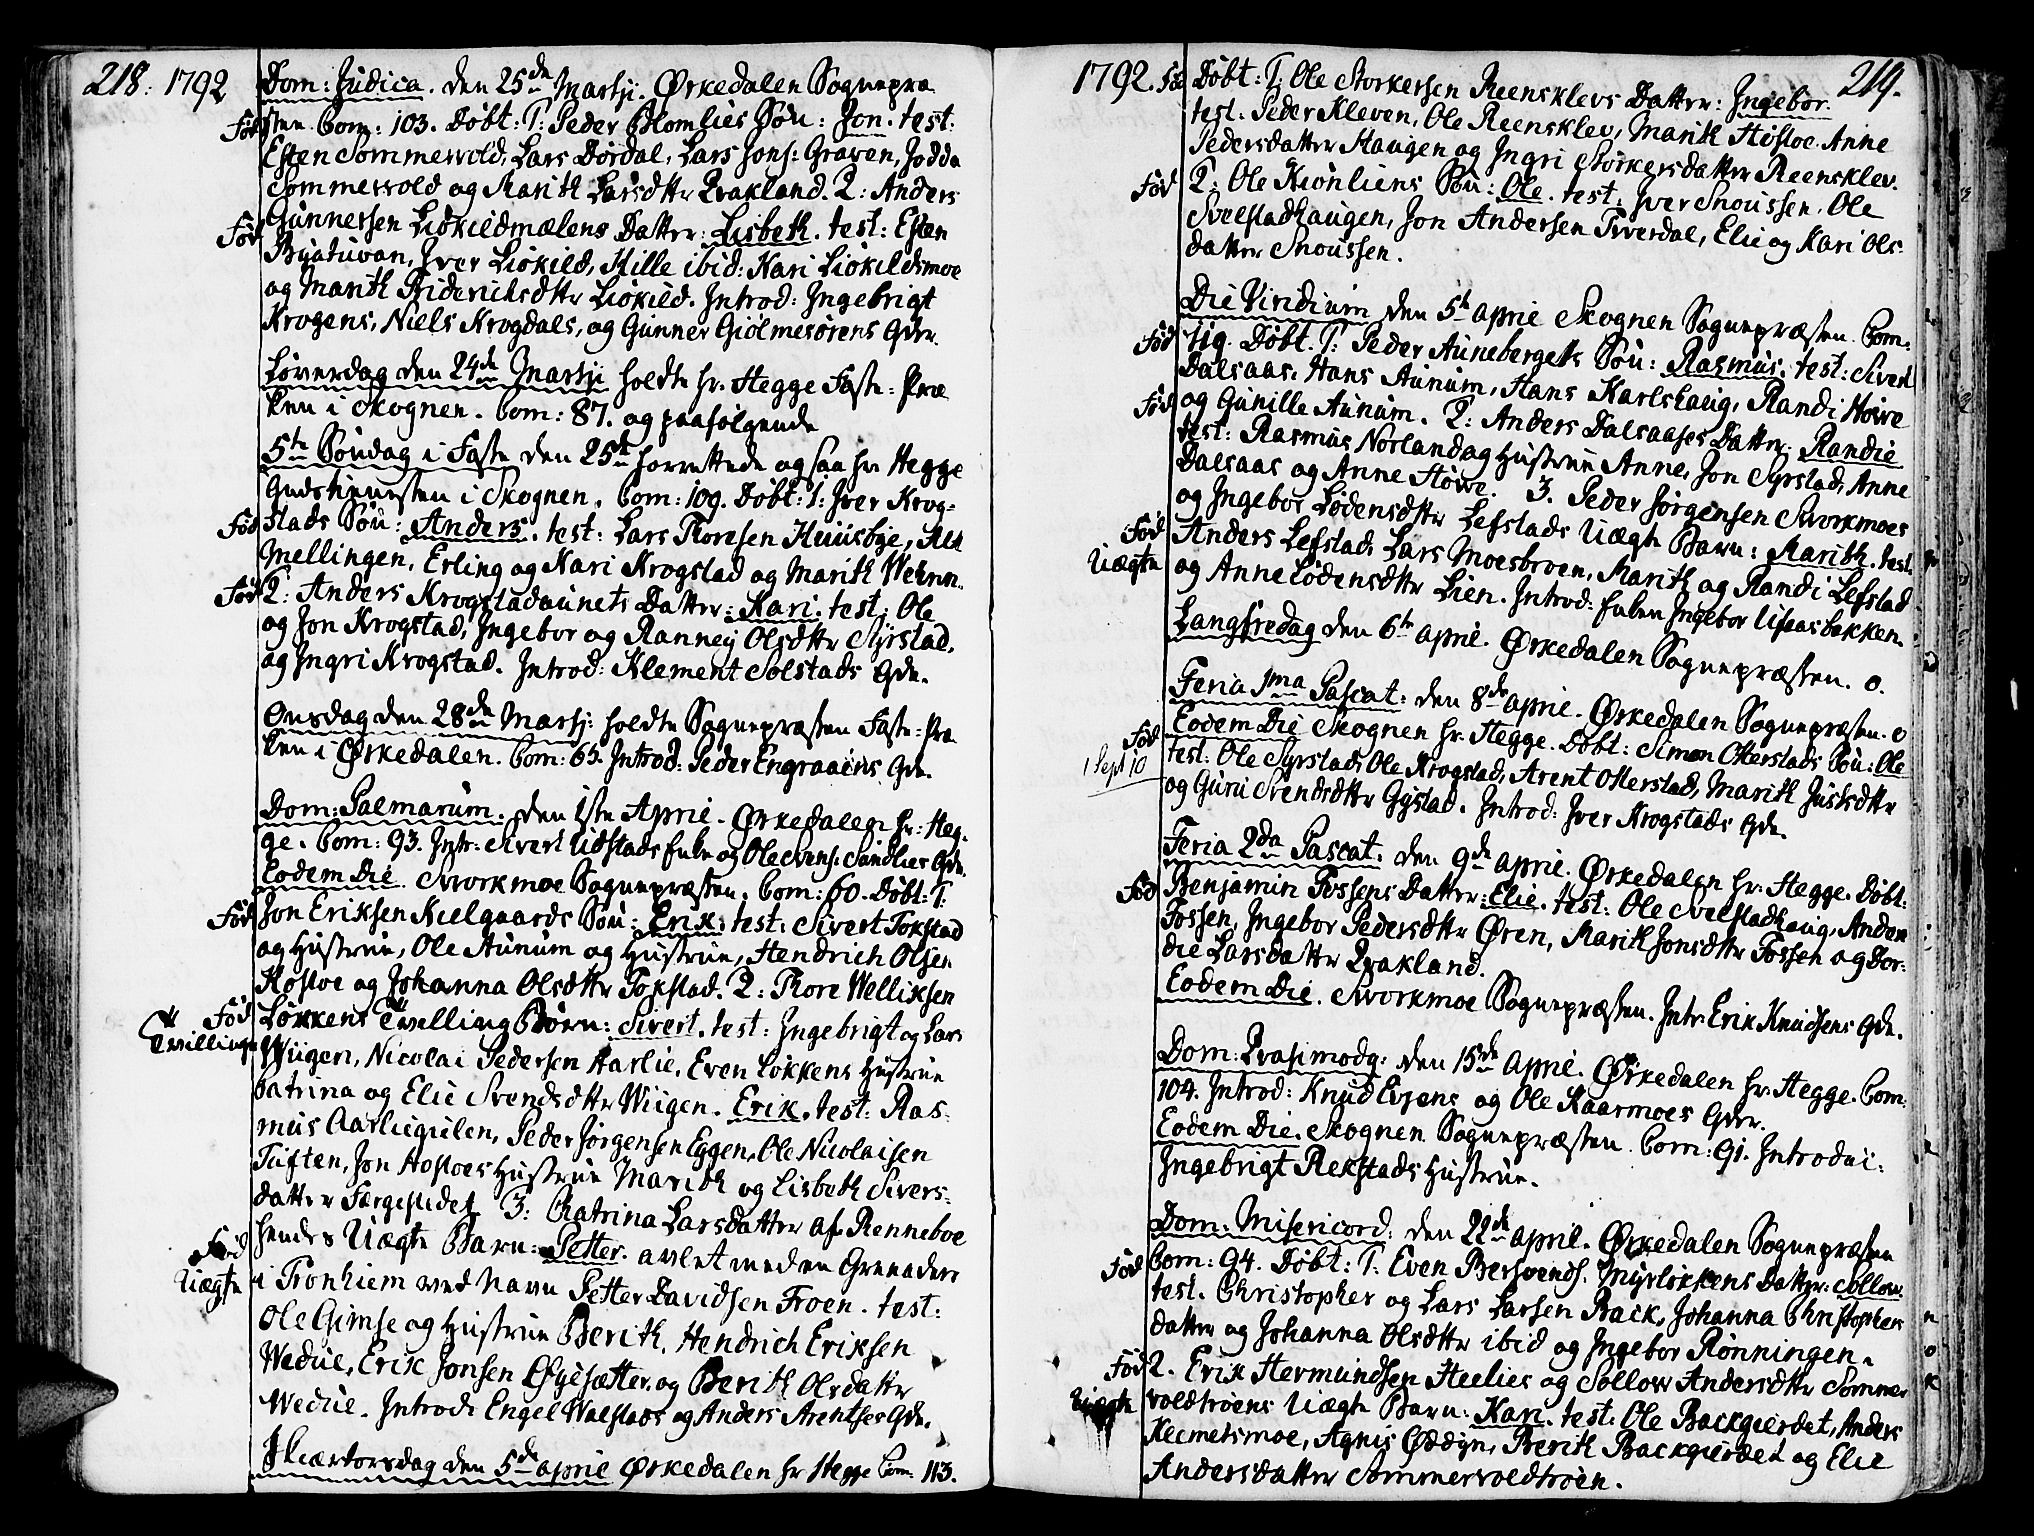 218. 1792
Dom: Judica. den 25de Martij. Ørkedalen Sognepræ
Fød sten. Com: 103. Døbt: 1: Peder Blomlies Søn: Jon. test:
Esten Sommervold, Lars Dørdal, Lars Jons: Graven, Jodda
Sommervold og Marith Larsdttr Qvakland. 2: Anders
Fød Gunnersen Liøkildmælens Datter: Lisbeth. test: Esten
Byatuvan, Jver Liøkild, Hille ibid: Kari Liøkildsmoe
og Marith Rideriksdttr Liøkild. Introd: Ingebrigt
Krogens, Niels Krogdals, og Gunner Giølmesørens Qdr.
Løverdag den 24de Martij holdte hr. Hegge Faste=Præ
ken i Skognen. Com: 87. og paafølgende
5te Søndag i Faste den 25de forrettede ogsaa hr Hegge
Gudstienesten i Skognen. Com: 109. Døbt: 1: Jver Krog-
Fød stads Søn: Anders. test: Lars Thoresen Huusbye, Arnt
Mellingen, Erling og Kari Krogstad og Marith Wehrn.
Fød 2: Anders Krogstadaunets Datter: Kari. test: Ole
og Jon Krogstad, Ingebor og Ranneij Olsdttr Syrstad,
og Ingri Krogstad. Introd: Klement Solstads Qde.
Onsdag den 28de Martij: holdte Sognepræsten Faste=Præ
ken i Ørkedalen. Com: 65. Introd: Peder Engraaens Qde.
Dom: Palmarum. den 1ste Aprie. Ørkedalen hr: Heg-
ge. Com: 93. Intr: Sivert Udstads Enke og Ole Svens: Sandlies Qde.
Eodem Die. Svorkmoe Sognepræsten. Com: 60. Døbt: 1:
Fød Jon Eriksen Nielgaards Søn: Erik. test: Sivert Tokstad
og Hustrue, Ole Aunum og Hustrue, Hendrich Olsen
Hostoe og Johanna Olsdttr Tokstad. 2: Thore Welliksen
Fød Løkkens Tvelling Børn: Sivert. test: Ingebrigt og Lars
Tvillinge Wiigen, Nicolai Pedersen Aarlie, Even Løkkens Hustrue
Catrina og Elie Svendsdttr Wiigen. Erik. test: Ras-
mus Aarliegulen, Peder Jørgensen Eggen, Ole Nicolaisen
Tuften, Jon Hostoes Hustrue Marith og Lisbeth Sivers-
datter Færgestedet. 3: Catrina Larsdatter af Renneboe
Fød hendes Uægte Barn: Petter. avlet med en Grenader
Uægte i Tronhiem ved Navn Petter Davidsen Froen. test:
Ole Gimse og Hustrue Berith, Hendrich Eriksen
Wedue, Erik Jonsen Øyesætter og Berith Olsdattr
Wedue. Introd: Engel Walstads og Anders Arentses Qde.
Skiærtorsdag den 5de april Ørkedalen hr Hegge Com: 113.
1792. 219.
Fød Døbt: 1: Ole Storkersen Reensklevs Datter: Ingebor.
test: Peder Kleven, Ole Reensklev, Marith Hostoe, Anne
Pedersdatter Haugen og Ingri Storkersdatter Reensklev.
Fød 2: Ole Kiønliens Søn: Ole. test: Jver Snoussen, Ole
Svelstadhaugen, Jon Andersen Tverdal, Elie og Kari Ols-
datter Snoussen.
Die Viridium den 5te aprie Skognen Sognepræsten. Com:
Fød 119. Døbt. 1: Peder Aunebergets Søn: Rasmus. test: Sivert
Dalsaas, Hans Aunum, Hans Karlshaug, Randi Howe
Fød og Gunille Aunum. 2: Anders Dalsaases Datter: Randie
test: Rasmus Norland og Hustrue Anne, Jon Syrstad, Anne
Dalsaas og Anne Howe. 3. Peder Jørgensen Svorkmoes
Fød og Ingebor Lodensdttr Lefstads Uægte Barn: Marith. test:
Uægte Anders Lefstad, Lars Moesbroen, Marith og Randi Lefstad
og Anne Lodensdttr Lien. Introd: Enken Ingebor Useasbakken.
Langfredag den 6te april. Ørkedalen Sognepræsten. 0.
Feria 1ma Pascat: den 8de april. Ørkedalen Sognepræsten. 0
Fød Eodem Die Skognen hr. Hegge. Døbt: Simon Otterstads Søn: Ole
1 Sept 10 test: Ole Syrstad, Ole Krogstad, Arent Otterstad, Marith Justsdttr
og Guru Svendsdttr Gystad. Introd: Jver Krogstads Qde.
Feria 2da Pascat. den 9de april. Ørkedalen hr: Hegge. Døbt:
Fød Benjamin Fossens Datter: Elie. test: Ole Svelstadhaug, Anders
Fossen, Ingebor Pedersdttr Øren, Marith Jonsdttr Fossen og Dor-
die Larsdatter Qvakland.
Eodem Die. Svorkmoe Sognepræsten. Intr: Erik Knudsens Qde.
Dom: Qvasimodg: den 15de april. Ørkedalen hr: Hegge. Com:
104. Introd: Knud Evjens og Ole Kaarmoes Qder.
Eodem Die. Skognen Sognepræsten. Com: 91. Introdu:
Ingebrigt Rekstads Hustrue.
Dom: Misericord: den 22de april. Ørkedalen Sognepræsten
Fød Com: 94. Døbt: 1: Even Bersvends. Myrløkkens Datter: Sollow.
test. Christopher og Lars Larsen Back, Johanna Christophers
datter og Johanna Olsdttr ibid og Ingebor Rønningen.
Fød 2. Erik Hermundsen Heelies og Sollow Andersdttr Sommer
Uægte voldtrøens Uægte Barn: Kari. test: Ole Backgierdet, Anders
Kecmetsmoe, Agnis Oddøyn, Berith Backgierdet og Elie
Andersdatter Sommervoldtrøen.